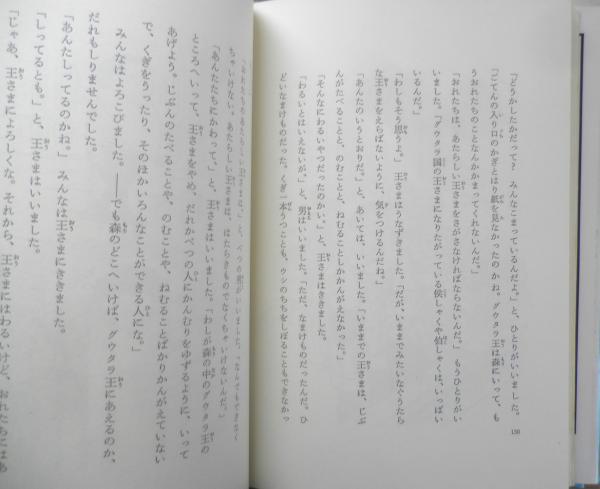 「どうかしたかだって？　みんなこまっているんだよ。」と、ひとりがいいました。
「ごてんの入り口のかぎとはり紙を見なかったのかね。グウタラ王は森にいって、も
うおれたちのことなんかかまってくれないんだ。」
「おれたちは、あたらしい王さまをさがさなければならないんだ。」もうひとりがい
いました。「グウタラ国の王さまになりたがっている侯しゃくや伯しゃくは、いっぱい
いるんだ。」
「わしもそう思うよ。」王さまはうなずきました。「だが、いままでみたいなぐうたら
な王さまをえらばないように、気をつけるんだね。」
「あんたのいうとおりだ。」と、あいては、いいました。「いままでの王さまは、じぶ
んがたべることと、のむことと、ねむることしかかんがえなかった。」
「そんなにわるいやつだったのかい。」と、王さまはききました。
「わるいとはいえないが。」と、男はいいました。「ただ、なまけものだったんだ。ひ
どいなまけものだった。くぎ一本うつことも、ウシのちちをしぼることもできなかっ
130
「おれたちのあたらしい王さまは、」と、べつの男がいいました。「なんでもできなく
ちゃいけない。あたらしい王さまは、はたらきものでなくちゃいけないんだ。」
「あんたたちにかわって、」と、王さまはいいました。「わしが森の中のグウタラ王の
ところへいって、王さまをやめ、だれかべつの人にかんむりをゆずるように、いって
あげよう。じぶんのたべることや、のむことや、ねむることばかりかんがえていない
で、くぎをうったり、そのほかいろんなことができる人にな。」
みんなはよろこびました。――でも森のどこへいけば、グウタラ王にあえるのか、
だれもしりませんでした。
「あんたしってるのかね。」みんなは王さまにききました。
「しってるとも。」と、王さまはいいました。
「じゃあ、王さまによろしくな。それから、王さまにはわるいけど、おれたちにはあ